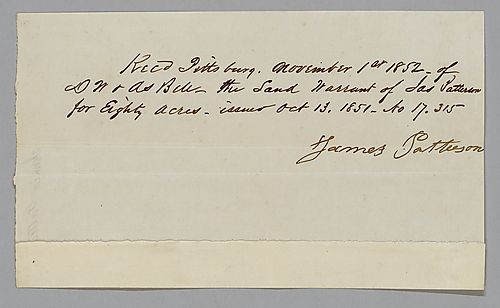 Recd Pittsburg. November 1st 1852 - of
D W & As Bell the Land Warrant of Jas Patterson
for Eighty Acres - issued Oct 13. 1851 - No 17.315
James Patterson